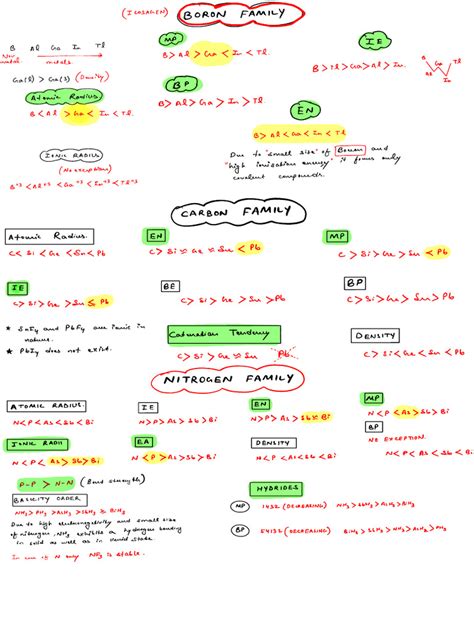 (ICOSAGEN) BORON FAMILY
B Al Ga In Tl
Non metal metals
Ga(l) > Ga(s) (Density)
Atomic Radius
B < Al > Ga < In < Tl
MP
B > Al > Ga < In < Tl
BP
B > Al > Ga > In > Tl
IE
B > Tl > Ga > Al > In.
B Al Ga In Tl
EN
B > Al < Ga < In < Tl
IONIC RADIUS
(No exceptions)
B+3 < Al+3 < Ga+3 < In+3 < Tl+3
Due to "small size" of Boron and
"high ionisation energy" it forms only
covalent compounds.
CARBON FAMILY
Atomic Radius.
C < Si < Ge < Sn < Pb
EN
C > Si ≈ Ge ≈ Sn < Pb
MP
C > Si > Ge > Sn < Pb
IE
C > Si > Ge > Sn ≤ Pb
BE
C > Si > Ge > Sn > Pb
BP
C > Si > Ge > Sn > Pb
★ SnF4 and PbF4 are ionic in
nature.
★ PbI4 does not exist.
Catenation Tendency
C > Si > Ge ≈ Sn Pb
DENSITY
C > Si < Ge < Sn < Pb
NITROGEN FAMILY
ATOMIC RADIUS.
N < P < As < Sb < Bi
IE
N > P > As > Sb > Bi
EN
N > P > As > Sb ≈ Bi
MP
N < P < As > Sb > Bi
BP
NO EXCEPTION.
N < P < As < Sb < Bi
IONIC RADII
N < P < As > Sb > Bi
EA
N < P > As > Sb > Bi
DENSITY
N < P < As < Sb < Bi
P-P > N-N (Bond strength)
BASICITY ORDER
NH3 > PH3 > AsH3 > SbH3 ≥ BiH3
Due to high electronegativity and small size
of nitrogen, NH3 exhibits a hydrogen bonding
in solid as well as in liquid state.
In case of N only NF3 is stable.
HYBRIDES
MP 1432 (DECREASING) NH3 > SbH3 > AsH3 > PH3
BP 54132 (DECREASING) BiH3 > SbH3 > NH3 > AsH3 > PH3